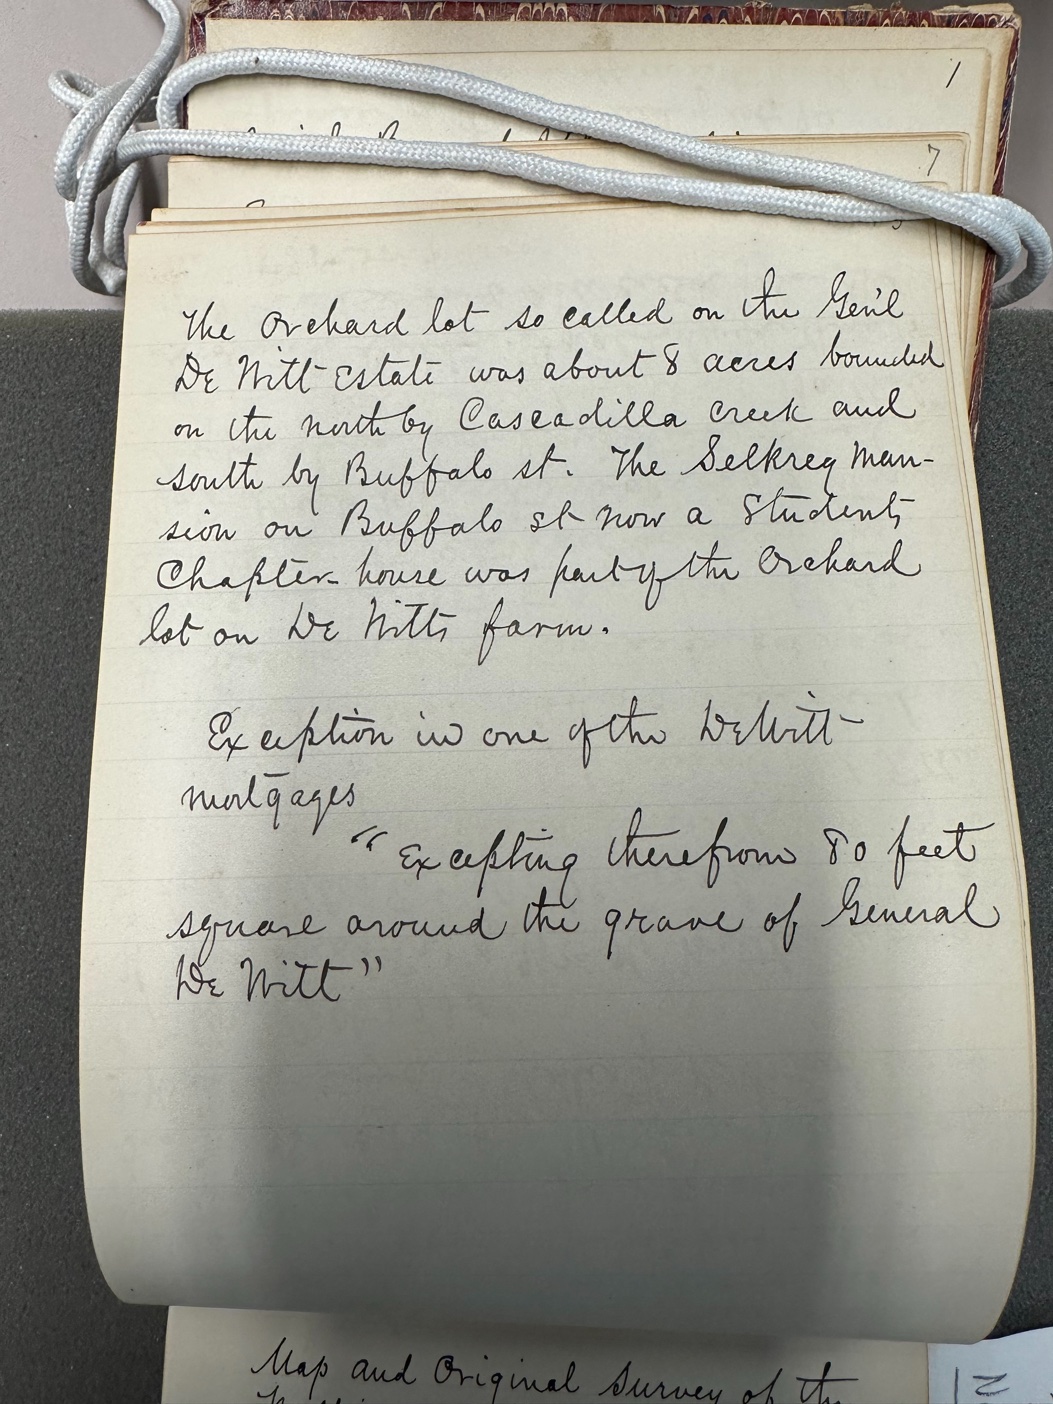 1
7
The Orchard lot so called on the Gen'l
De Witt Estate was about 8 acres bounded
on the north by Cascadilla Creek and
south by Buffalo st. The Selkreg Man-
sion on Buffalo st now a Students
Chapter house was part of the Orchard
lot on De Witts farm.
Exception in one of the DeWitt
mortgages
"Excepting therefrom 80 feet
square around the grave of General
De Witt"
Map and Original Survey of the